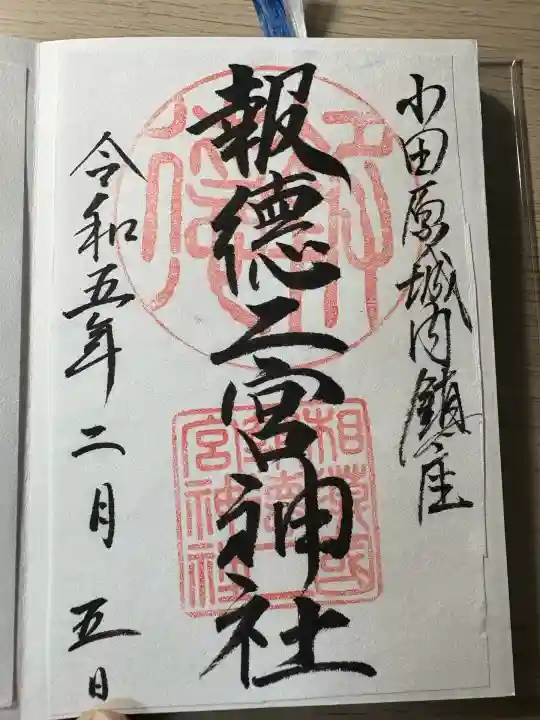 小田原城内鎮座
報徳二宮神社
令和五年二月五日
相模國
報徳二
宮神社